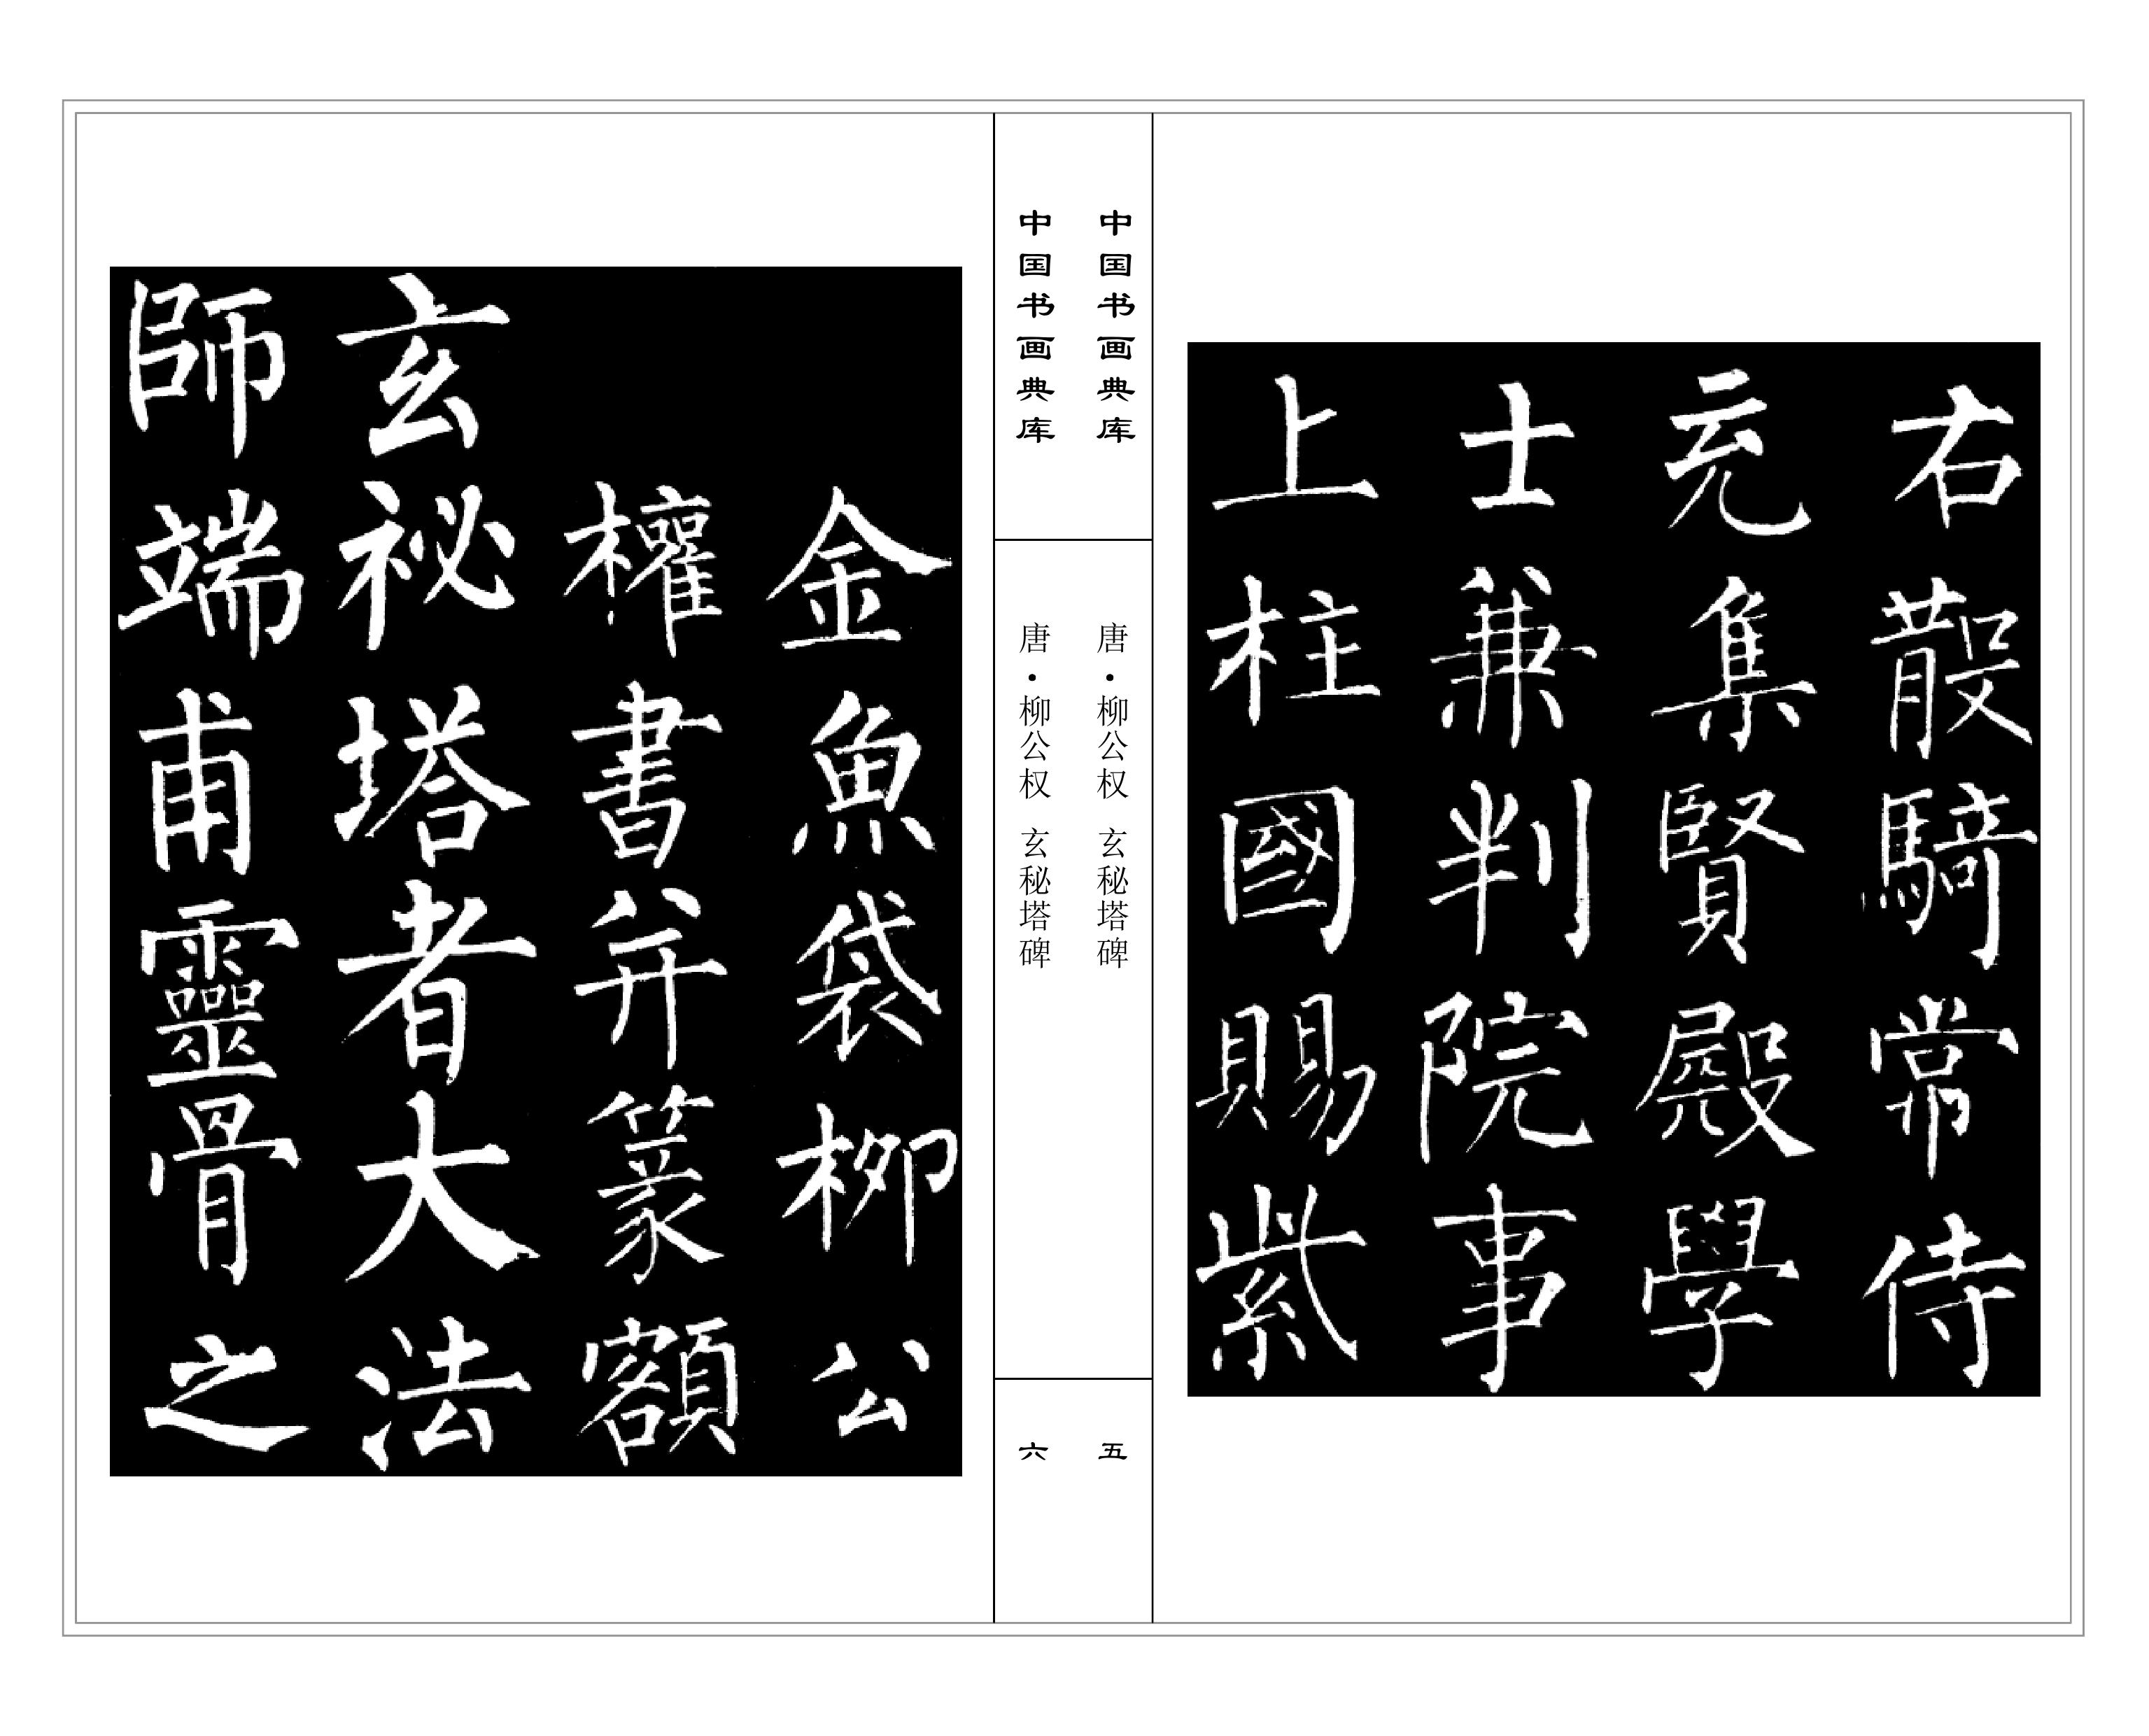 右散騎常侍
充集賢殿學
士兼判院事
上柱國賜紫
中国书画典库
唐·柳公权 玄秘塔碑
五
中国书画典库
唐·柳公权 玄秘塔碑
六
金魚袋柳公
權書并篆額
玄秘塔者大法
師端甫靈骨之